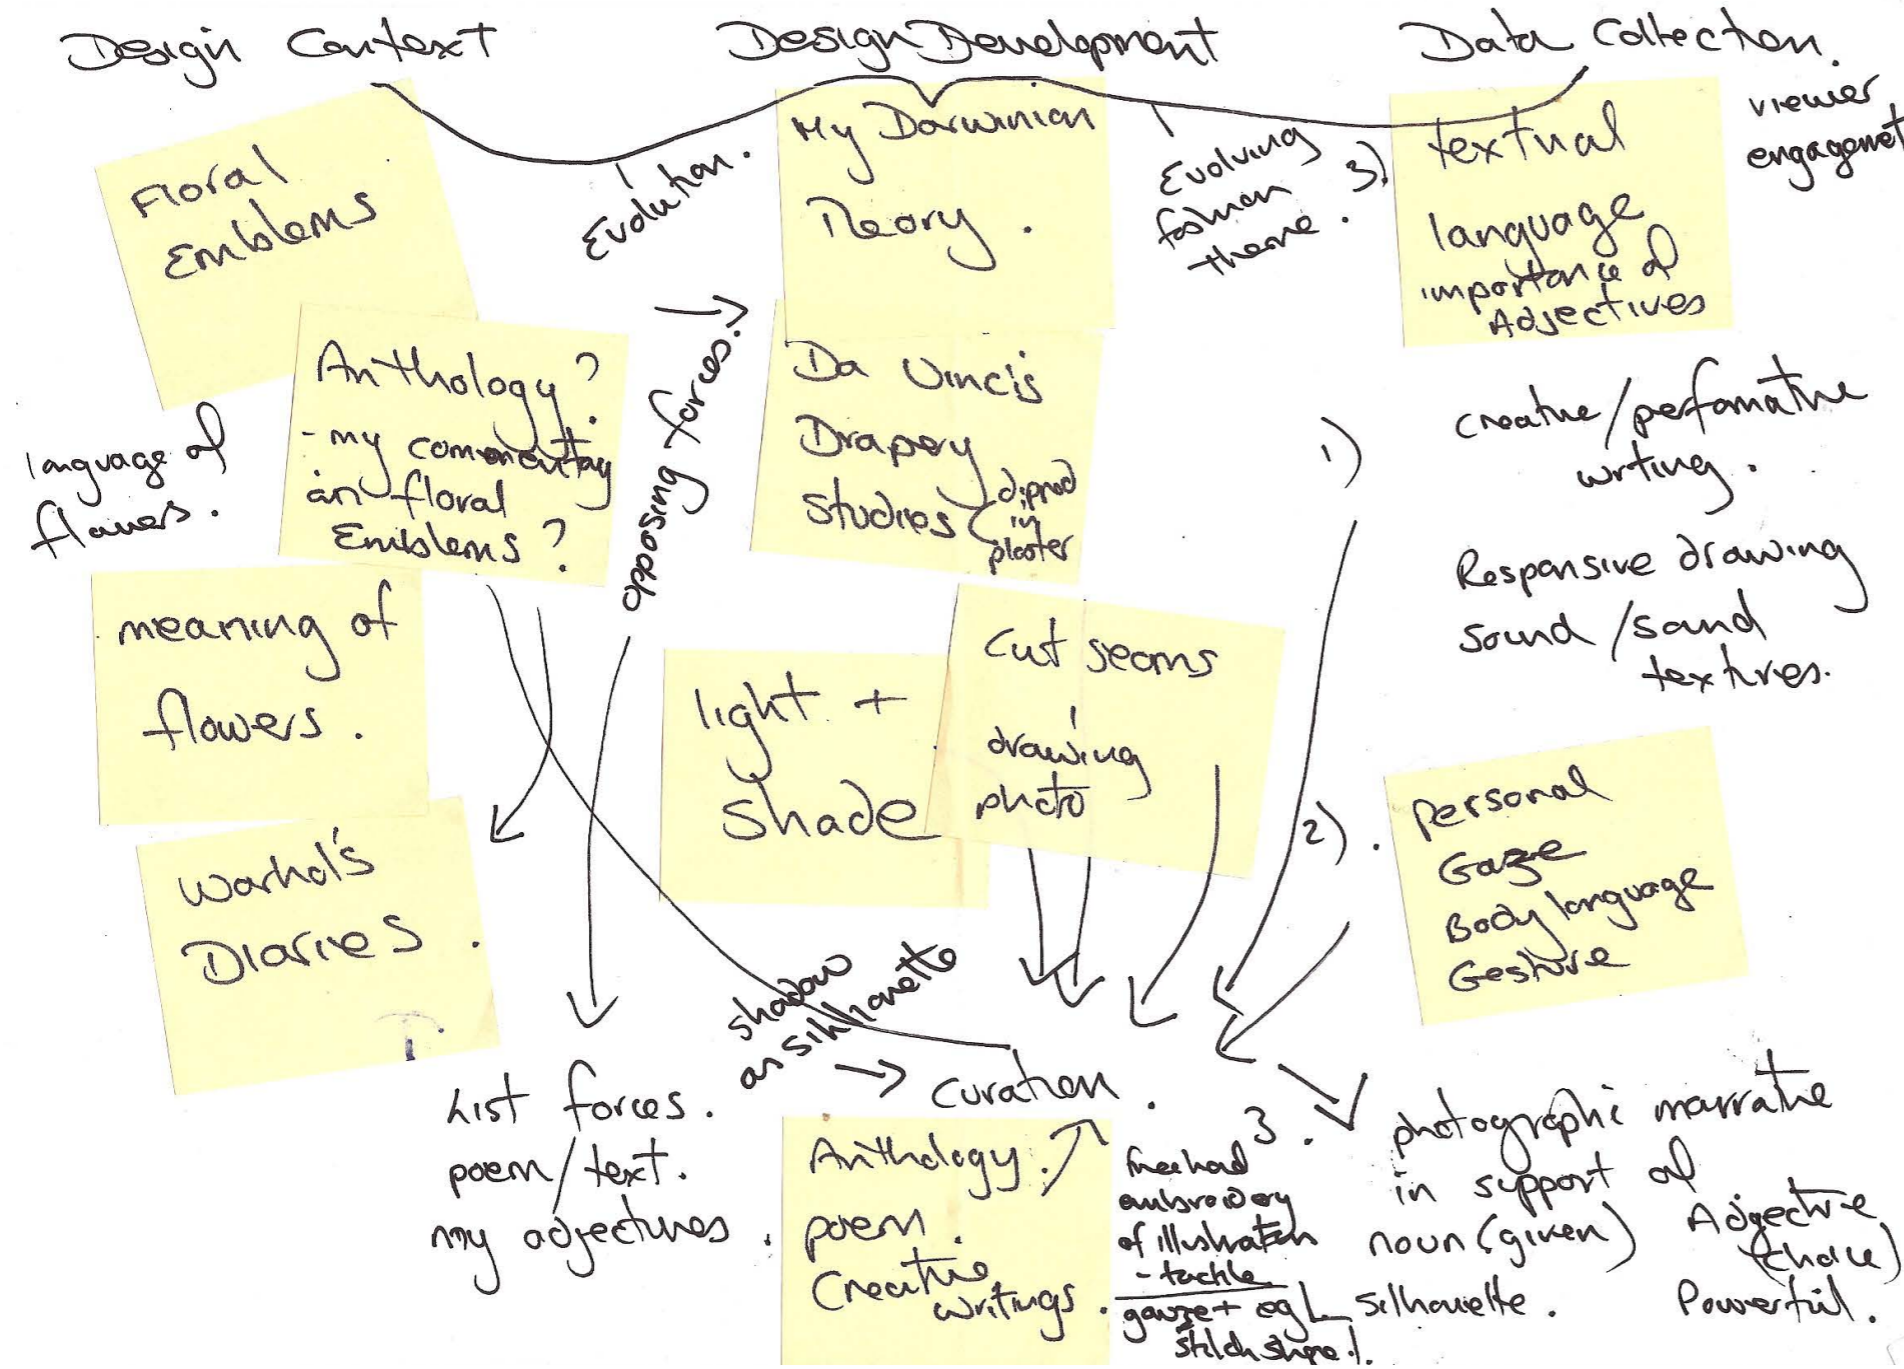 Design Context
Design Development
Data Collection.
Floral
Emblems
Evolution.
My Darwinian
Theory.
Evolving
fashion
theme.
3)
textual
language
importance of
Adjectives
viewer
engagemet
language of
flowers.
Anthology?
- my commentay
on floral
Emblems?
opposing forces.
Da Vincis
Drapey
Studies (dipped
in
plaster
1)
creative/performative
writing.
Responsive drawing
sound/sand
textures.
meaning of
flowers.
light +
shade
cut seams
drawing
photo
2).
personal
Gaze
Body language
Gesture
Warhol's
Diaries.
shadow
as silhouette
List forces.
poem/text.
my adjectives.
curation.
Anthology.
poem.
Creative
writings.
3.
freehand
embroidery
of illustration
- tactile
gauze + eg L
stitch shape!.
photographic narrative
in support of
noun (given) Adjective
(choice)
silhouette. Powerful.